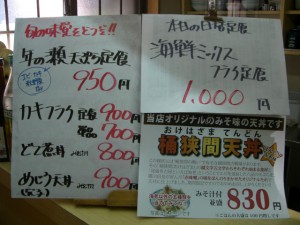 旬の味覚をどうぞ!!
年の瀬 天ぷら定食
950円
カキフライ 定食 900円
単品 700円
どて煮丼 みそ汁付 800円
めじろ天丼 みそ汁付 900円
本日の日替定食
海鮮ミックス
フライ定食
1,000円
当店オリジナルのみそ味の天丼です
おけはざま てんどん
桶狭間天丼
みそ汁付
830円